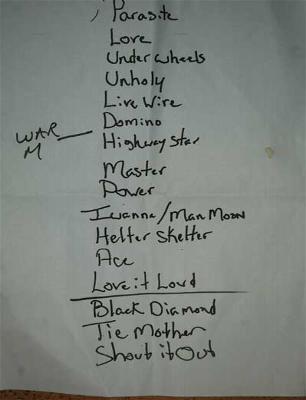 Parasite
Love
Under wheels
Unholy
Live Wire
Domino
WAR
M
Highway Star
Master
Power
Iwanna/Man Moon
Helter Skelter
Ace
Love it Loud
Black Diamond
Tie Mother
Shout it Out